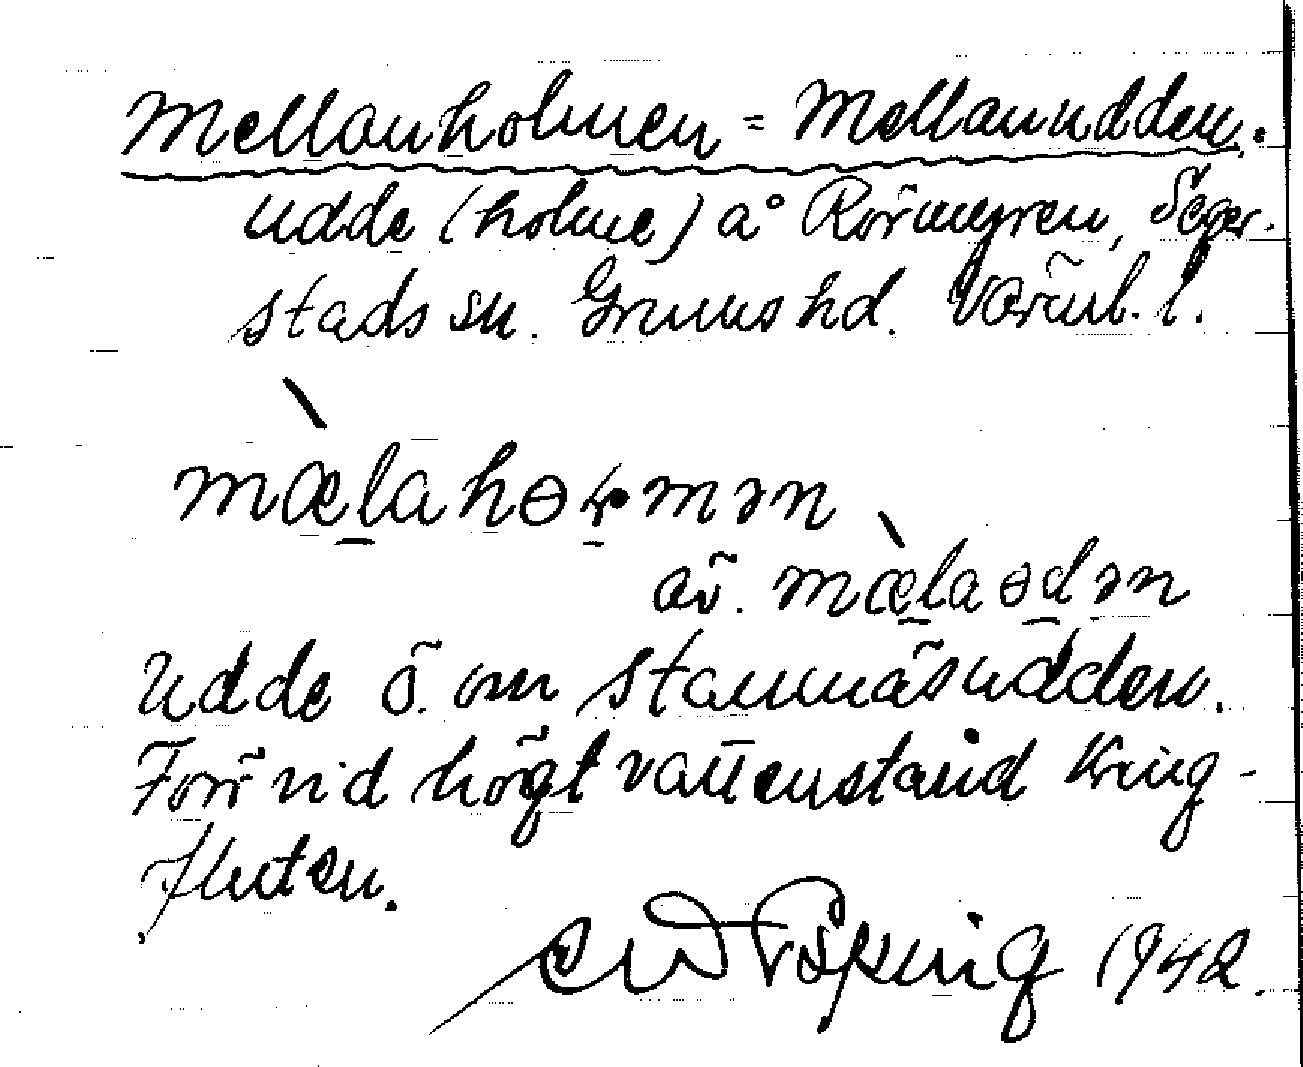 Mellanholmen = Mellanudden.
Udde (holme) å Rörmyren, Seger-
stads sn. Grums hd. Värml. l.
mæ̀lahɵɽmən
äv. mæ̀laɵdən
Udde ö. om Stamnäsudden.
Förr vid högt vattenstånd kring-
fluten.
1942.